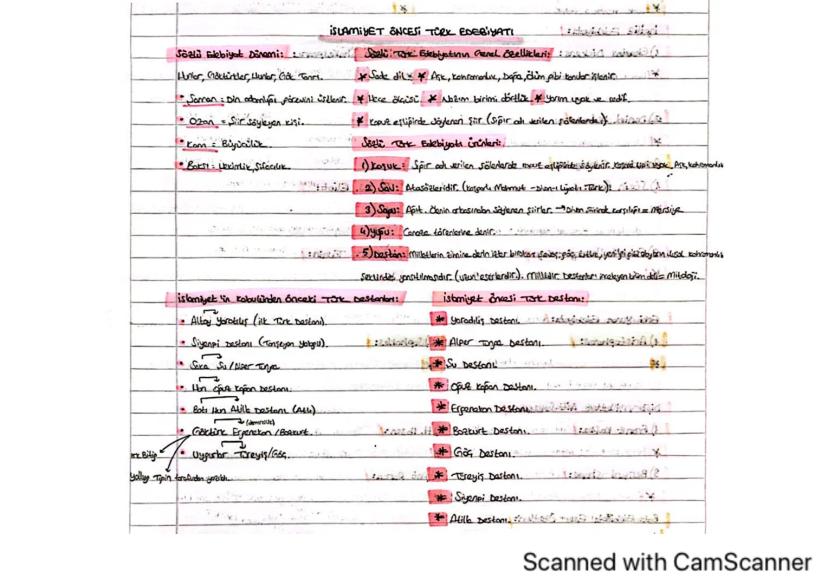 İSLAMİYET ÖNCESİ TÜRK EDEBİYATI
Sözlü Edebiyat Dönemi:
Hunlar, Göktürkler, Hunlar, Gök Tanrı.
* Şaman: Din adamlığı görevini üstlenir.
* Ozan = Şiir söyleyen kişi.
* Kam = Büyücülük
* Baksı: Hekimlik, Şifacılık
Sözlü Türk Edebiyatının Genel Özellikleri:
* Sade dil * Aşk, kahramanlık, Doğa, ölüm gibi konular işlenir.
* Hece ölçüsü * Nazım birimi dörtlük * Yarım uyak ve redif.
* Kopuz eşliğinde söylenen şiir (Sığır adı verilen şölenlerde)
Sözlü Türk Edebiyatı Ürünleri:
1) Koşuk: Sığır adı verilen şölenlerde kopuz eşliğinde söylenir. Aşk, kahramanlık
2) Sav: Atasözleridir. (Kaşgarlı Mahmut - Divan-ı Lügati Türk)
3) Sagu: Ağıt. Ölenin arkasından söylenen şiirler. → Divan karşılığı = Mersiye
4) Yuğ: Cenaze törenlerine denir.
5) Destan: Milletlerin derin izler bırakan savaş, göç, kıtlık, gibi
şekilde yansıtılmasıdır. (uzun eserlerdir). Milletlerin Destanları inceleyen bilim dalı = Mitoloji.
İslamiyet'in Kabulünden Önceki Türk Destanları:
* Altay Yaratılış (ilk Türk Destanı).
* Siyenpi Destanı
* Saka Şu / Alper Tunga
* Hun Oğuz Kağan Destanı.
* Batı Hun Atilla Destanı (Atlı)
* Göktürk Ergenekon / Bozkurt.
* Uygurlar Türeyiş/Göç.
tarafından yazıldı.
İslamiyet Öncesi Türk Destanı:
* Yaradılış Destanı.
* Alper Tunga Destanı.
* Şu Destanı
* Oğuz Kağan Destanı.
* Ergenekon Destanı
* Bozkurt Destanı.
* Göç Destanı.
* Türeyiş Destanı.
* Siyenpi Destanı.
* Atilla Destanı.
Scanned with CamScanner